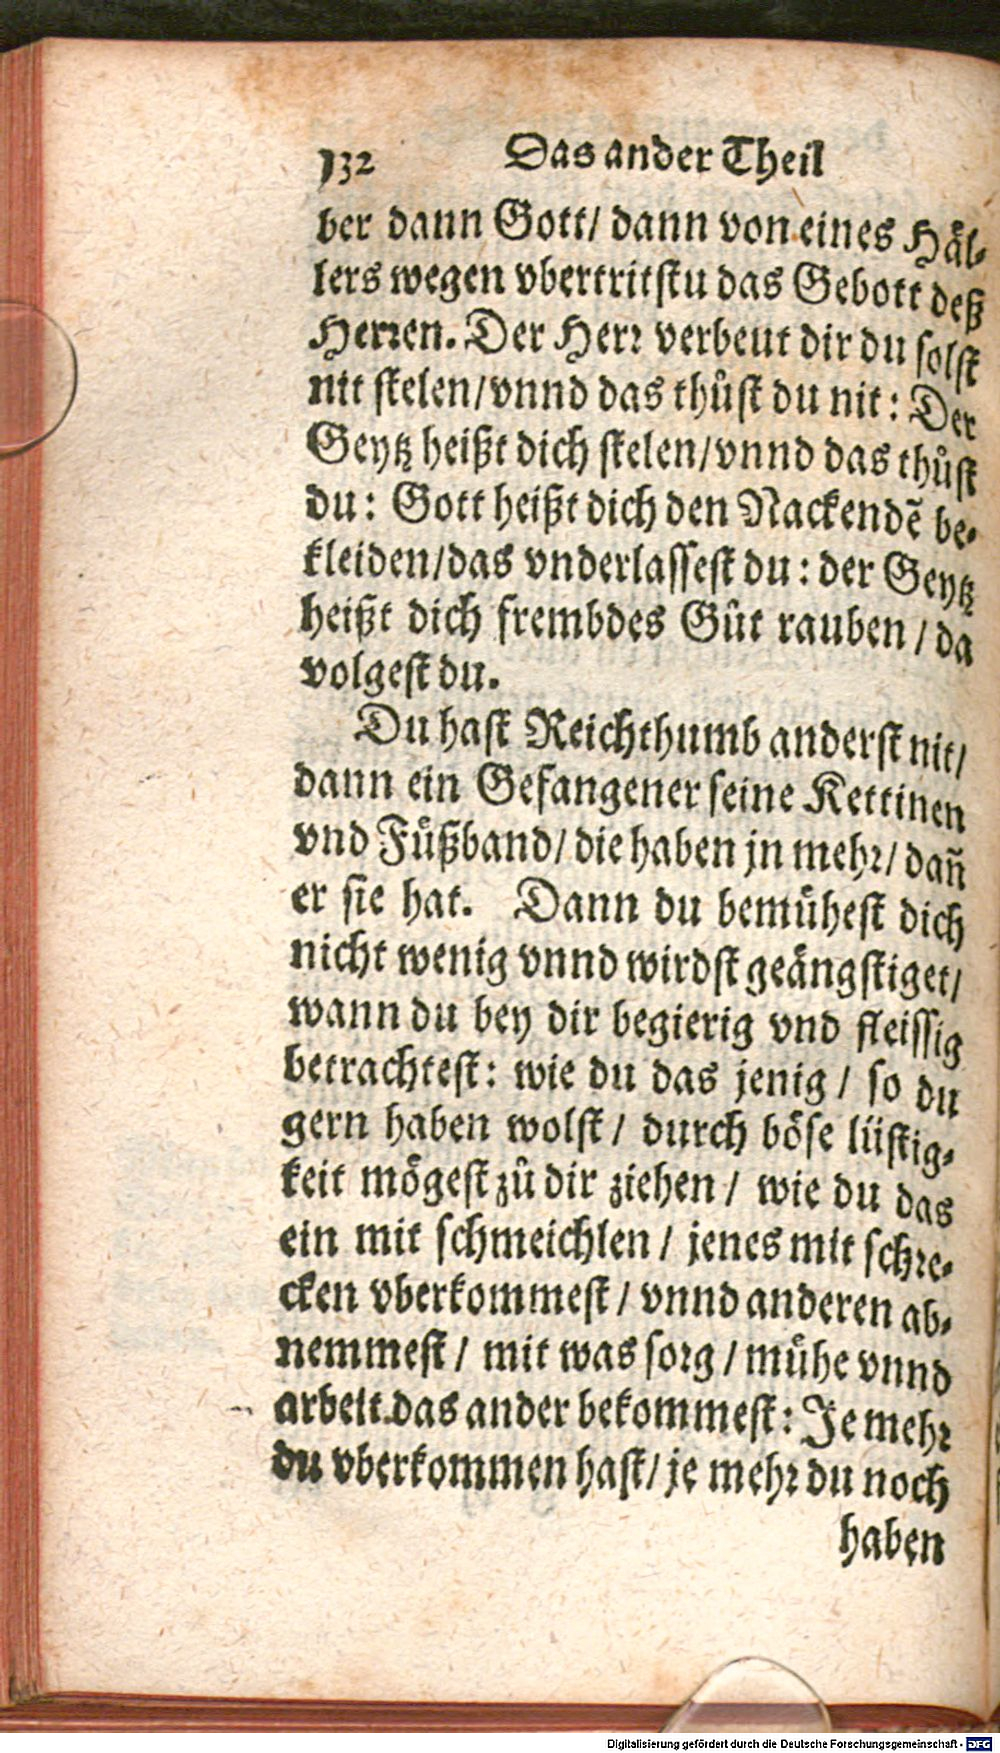 132 Das ander Theil
ber dann Gott/ dann von eines Häl-
lers wegen vbertritstu das Gebott deß
Herren. Der Herr verbeut dir du solst
nit stelen/vnnd das thůst du nit: Der
Geytz heißt dich stelen/vnnd das thůst
du: Gott heißt dich den Nackendē be-
kleiden/das vnderlassest du: der Geytz
heißt dich frembdes Gůt rauben / da
volgest du.
Du hast Reichthumb anderst nit/
dann ein Gefangener seine Kettinen
vnd Fůßband/ die haben jn mehr/ dañ
er sie hat. Dann du bemühest dich
nicht wenig vnnd wirdst geängstiget/
wann du bey dir begierig vnd fleissig
betrachtest: wie du das jenig / so du
gern haben wolst / durch böse lüstig-
keit mögest zů dir ziehen / wie du das
ein mit schmeichlen / jenes mit schre-
cken vberkommest / vnnd anderen ab-
nemmest / mit was sorg / mühe vnnd
arbeit das ander bekommest: Je mehr
du vberkommen hast/ je mehr du noch
haben
Digitalisierung gefördert durch die Deutsche Forschungsgemeinschaft - DFG